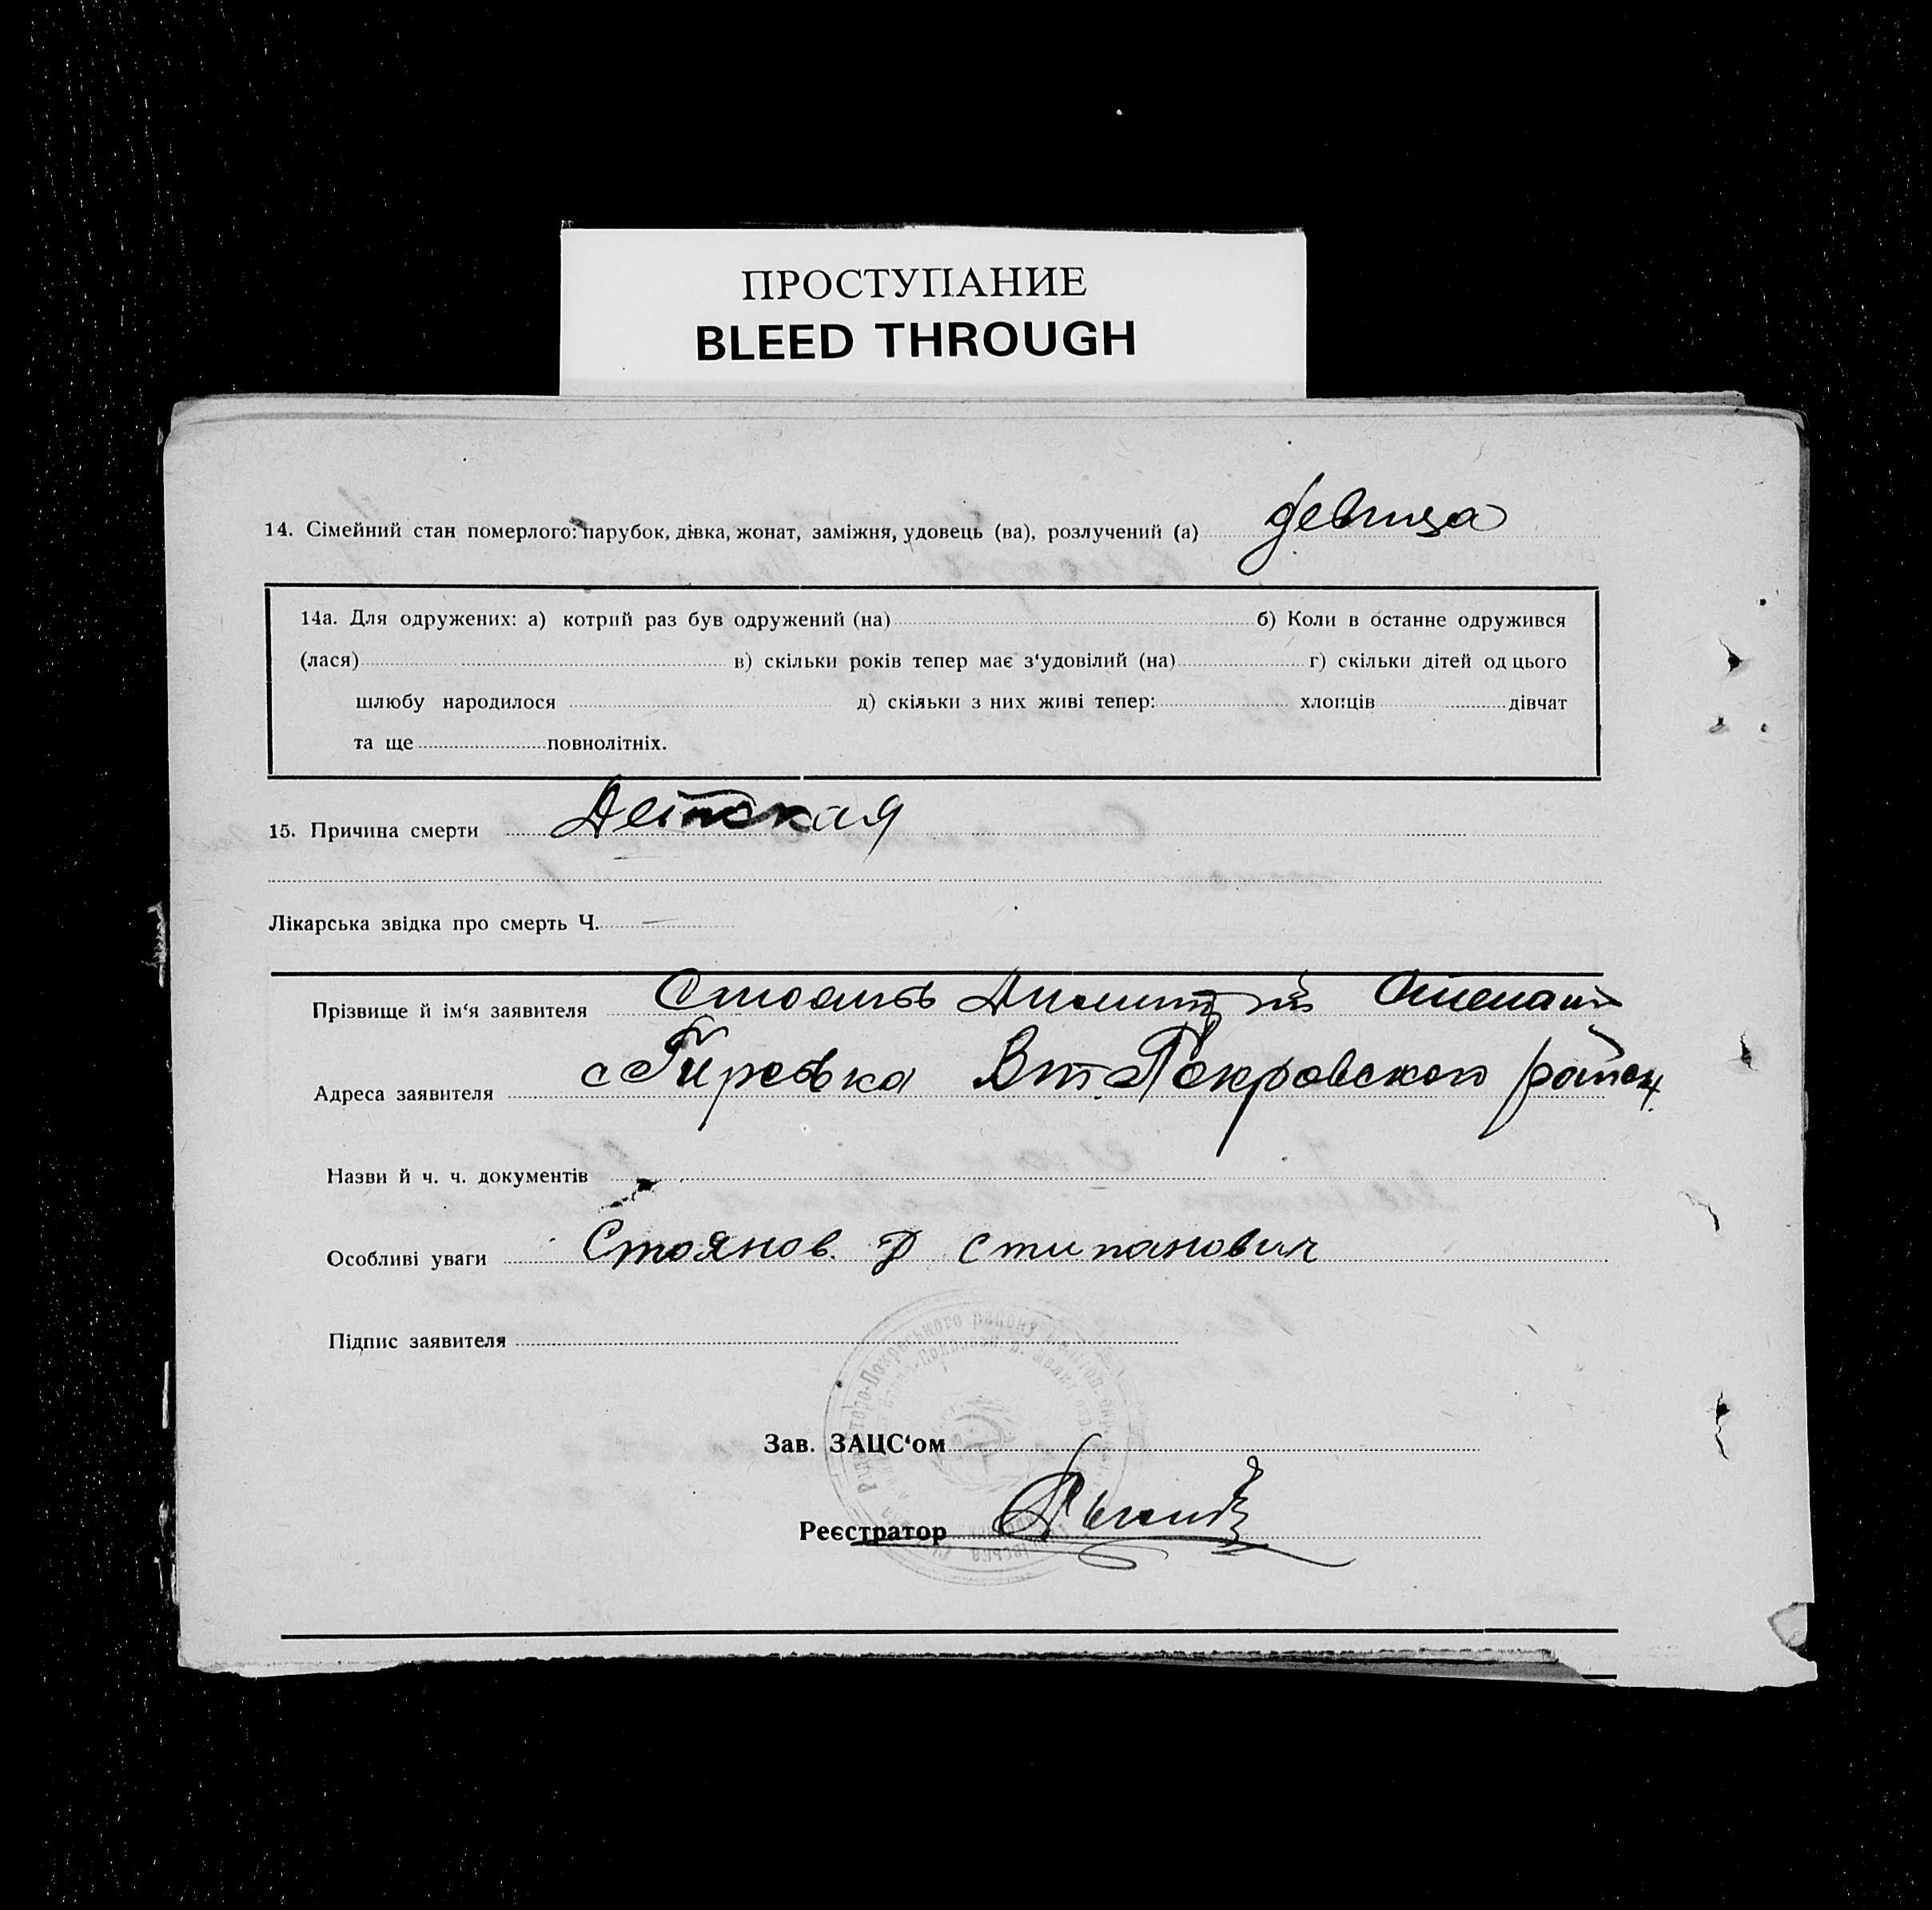 ПРОСТУПАНИЕ
BLEED THROUGH
14. Сімейний стан померлого: парубок, дівка, жонат, заміжня, удовець (ва), розлучений (а) девица
14а. Для одружених: а) котрий раз був одружений (на) б) Коли в останне одружився
(лася) в) скільки років тепер має з‘удовілий (на) г) скільки дітей од цього
шлюбу народилося д) скільки з них живі тепер: хлопців дівчат
та ще повнолітніх.
15. Причина смерти Детская
Лікарська звідка про смерть Ч. —
Прізвище й ім‘я заявителя Стоянов Димитрий Степан
Адреса заявителя с Гировка Вт. Покровского район
Назви й ч. ч. документів
Особливі уваги Стоянов. Д Стипанович
Підпис заявителя
Зав. ЗАЦС‘ом
Реєстратор